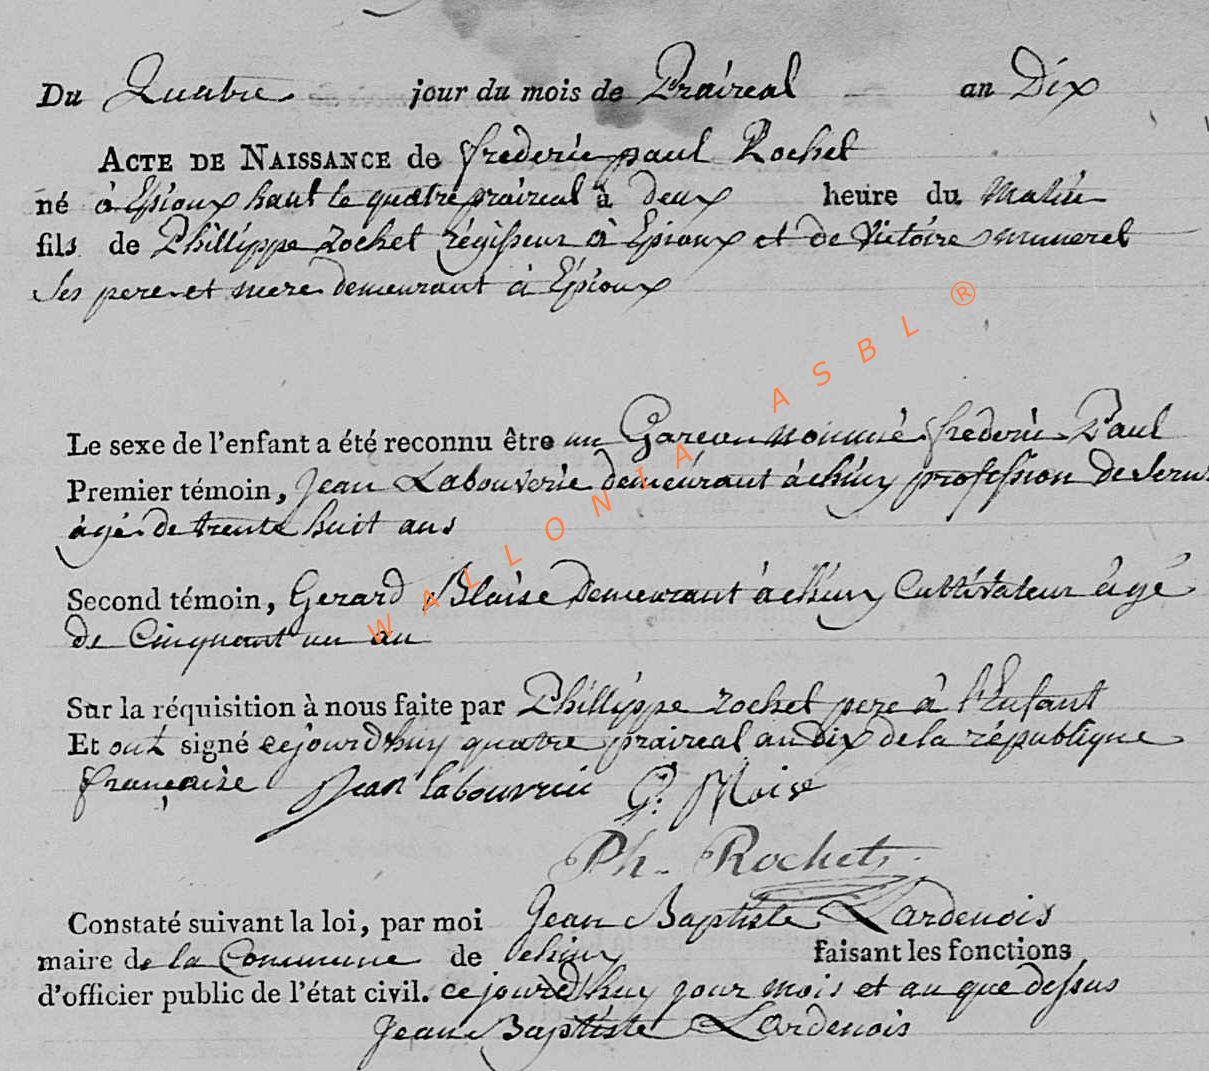 Du Quatre jour du mois de Praireal an Dix
ACTE DE NAISSANCE de frederic paul Rochet
né à Epioux haut le quatre praireal à deux heure du Matin
fils de Phillippe rochet régisseur à Epioux et de Victoire
ses pere et mere demeurant à Epioux
Le sexe de l'enfant a été reconnu être un Garcon nommé frederic Paul
Premier témoin, Jean Labouverie demeurant à chiny profession de
àgé de trente huit ans
Second témoin, Gerard Blaise demeurant à chiny Cultivateur àgé
de Cinquant un an
Sur la réquisition à nous faite par Phillippe rochet pere à l'Enfant
Et ont signé cejourdhuy quatre praireal an Dix de la république
française Jean labouverie G.
Ph. Rochet
Constaté suivant la loi, par moi Jean Baptiste Lardenois
maire de la Commune de chiny faisant les fonctions
d'officier public de l'état civil. ce jourdhuy jour mois et an que dessus
Jean Baptiste Lardenois
WALLONIA ASBL ®